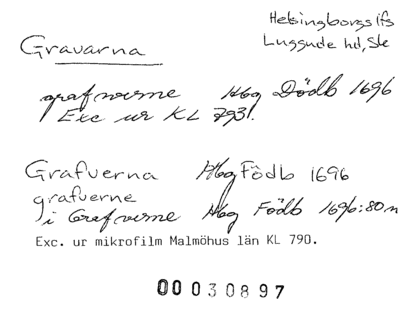 Helsingborgs lfs
Luggude hd, Sk
Gravarna
grafverne Hbg Dödb 1696
Exc ur KL 793.
Grafverna Hbg Födb 1696
grafverne
i Grafverne Hbg Födb 1696:80
Exc. ur mikrofilm Malmöhus län KL 790.
00 030897